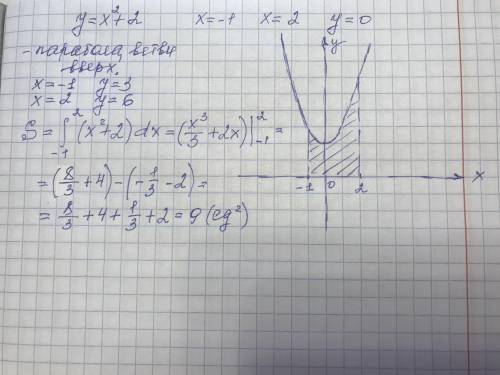 y=x²+2 x=-1 x=2 y=0
-парабола, ветви
вверх.
x=-1 y=3
x=2 y=6
S=∫₋₁² (x²+2)dx=(x³/3+2x)|₋₁²=
=(8/3+4)-(-1/3-2)=
=8/3+4+1/3+2=9(ед²)
y
-1 0 2 x